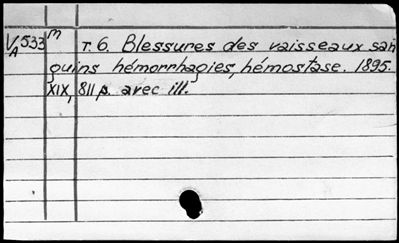 V/A 533 m т. 6. Blessures des vaisseaux san
guins hémorrhagies, hémostase. 1895.
XIX, 811 p. avec ill.